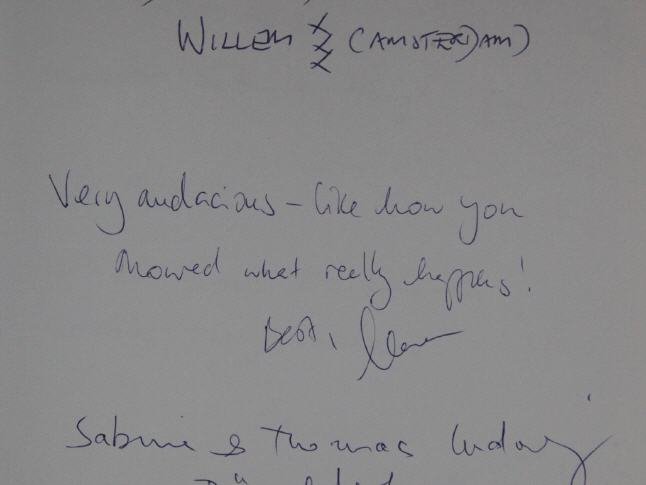 WILLEM XXX (AMSTERDAM)
Very audacious – like how you
showed what really happens!
Best,
Sabine & Thomas Ludwig